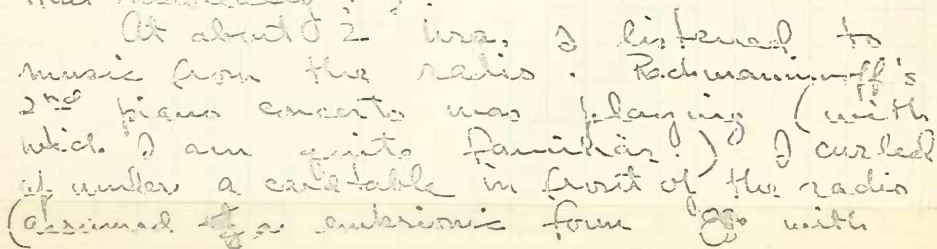 At about 2 hrs, I listened to
music from the radio. Rachmaninoff's
2nd piano concerto was playing (with
which I am quite familiar.) I curled
up under a card table in front of the radio
(assumed embryonic form with